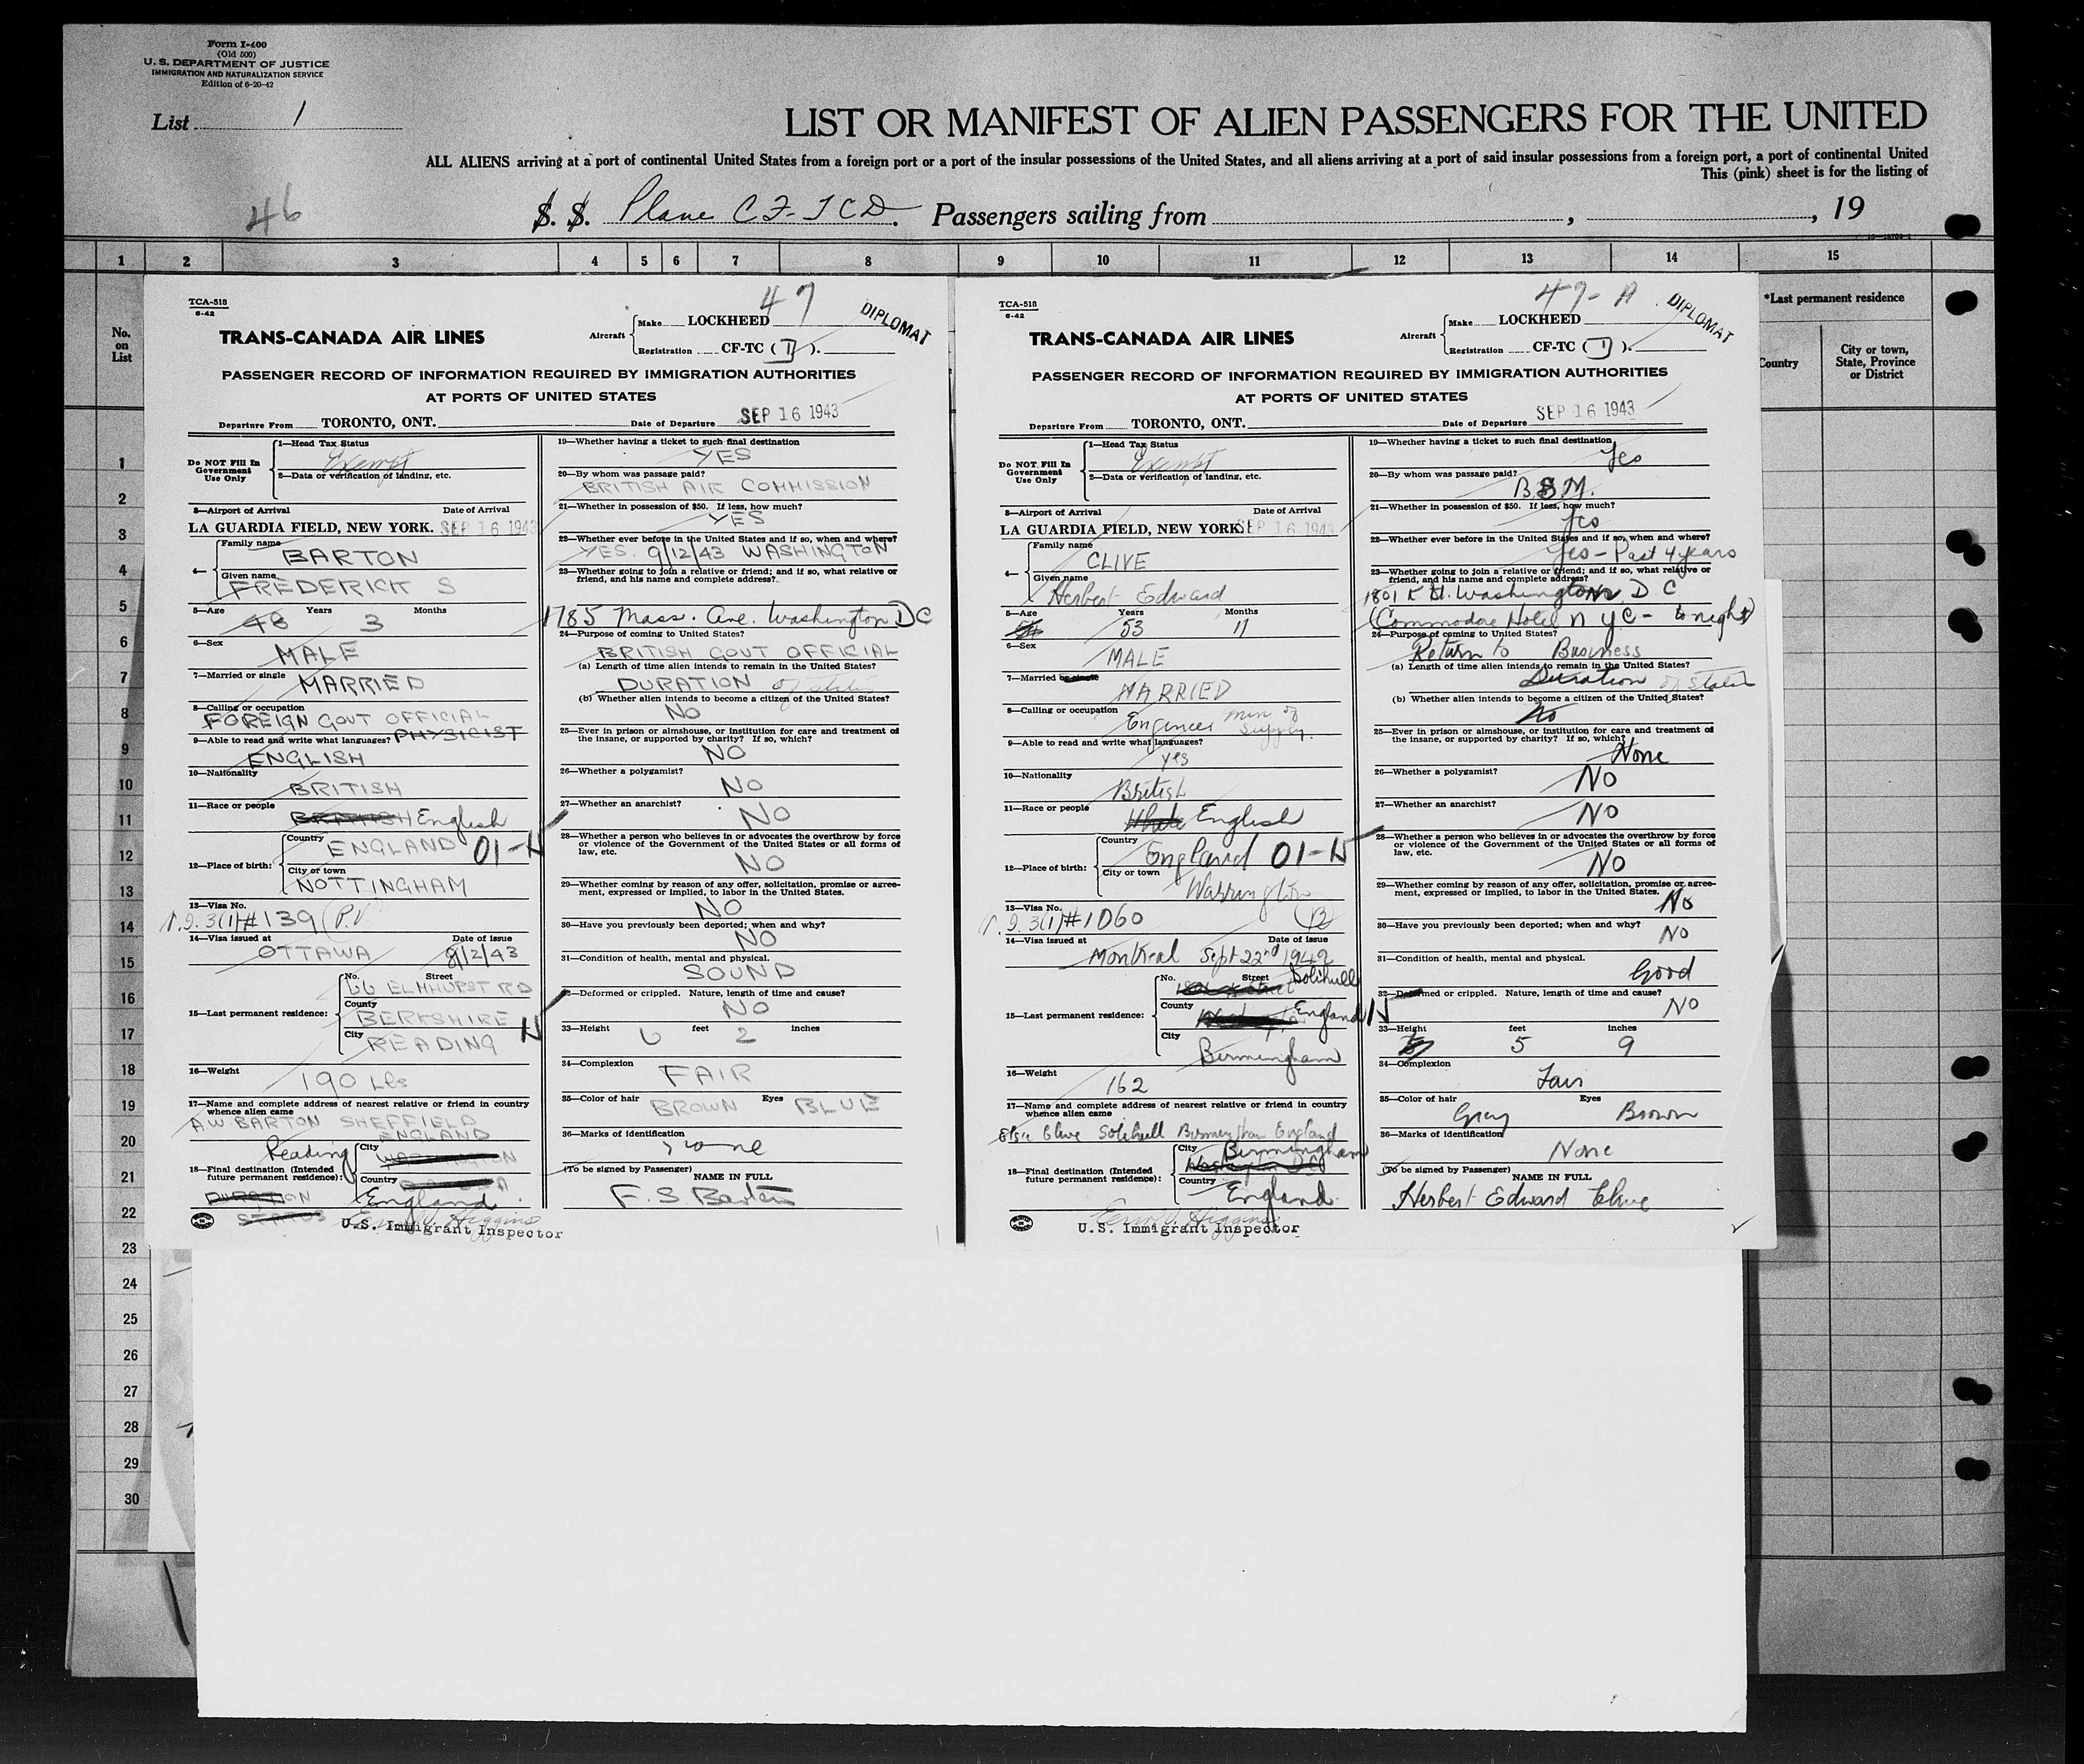 Form I-400
(Old 500)
U. S. DEPARTMENT OF JUSTICE
IMMIGRATION AND NATURALIZATION SERVICE
Edition of 6-20-42
List 1
LIST OR MANIFEST OF ALIEN PASSENGERS FOR THE UNITED
ALL ALIENS arriving at a port of continental United States from a foreign port or a port of the insular possessions of the United States, and all aliens arriving at a port of said insular possessions from a foreign port, a port of continental United
This (pink) sheet is for the listing of
46
S. S. Plane CF-TCD. Passengers sailing from , , 19
1 2 3 4 5 6 7 8 9 10 11 12 13 14 15
No.
on
List
*Last permanent residence
Country
City or town,
State, Province
or District
1
2
3
4
5
6
7
8
9
10
11
12
13
14
15
16
17
18
19
20
21
22
23
24
25
26
27
28
29
30
TCA-518
6-42
47
DIPLOMAT
TRANS-CANADA AIR LINES
Aircraft
Make LOCKHEED
Registration CF-TC ( ).
PASSENGER RECORD OF INFORMATION REQUIRED BY IMMIGRATION AUTHORITIES
AT PORTS OF UNITED STATES
SEP 16 1943
Departure From TORONTO, ONT. Date of Departure
Do NOT Fill In
Government
Use Only
1—Head Tax Status
Exempt
2—Data or verification of landing, etc.
3—Airport of Arrival Date of Arrival
LA GUARDIA FIELD, NEW YORK. SEP 16 1943
4—
Family name
BARTON
Given name
FREDERICK S
5—Age Years Months
48 3
6—Sex
MALE
7—Married or single
MARRIED
8—Calling or occupation
FOREIGN GOVT OFFICIAL
PHYSICIST
9—Able to read and write what languages?
ENGLISH
10—Nationality
BRITISH
11—Race or people
BRITISH English
12—Place of birth:
Country
ENGLAND 01-N
City or town
NOTTINGHAM
13—Visa No.
3(1) #139 (P.V
14—Visa issued at Date of issue
OTTAWA 9/2/43
15—Last permanent residence:
No. Street
66 ELMHURST RD
County
BERKSHIRE N
City
READING
16—Weight
190 Lbs
17—Name and complete address of nearest relative or friend in country
whence alien came
A W BARTON SHEFFIELD
ENGLAND
18—Final destination (Intended
future permanent residence):
Reading
City
WASHINGTON
Country
England
DURATION
STATUS
U.S. Immigrant Inspector
19—Whether having a ticket to such final destination
YES
20—By whom was passage paid?
BRITISH AIR COMMISSION
21—Whether in possession of $50. If less, how much?
YES
22—Whether ever before in the United States and if so, when and where?
YES. 9/12/43 WASHINGTON
23—Whether going to join a relative or friend; and if so, what relative or
friend, and his name and complete address?
1785 Mass. Ave. Washington DC
24—Purpose of coming to United States?
BRITISH GOVT OFFICIAL
(a) Length of time alien intends to remain in the United States?
DURATION of status
(b) Whether alien intends to become a citizen of the United States?
NO
25—Ever in prison or almshouse, or institution for care and treatment of
the insane, or supported by charity? If so, which?
NO
26—Whether a polygamist?
NO
27—Whether an anarchist?
NO
28—Whether a person who believes in or advocates the overthrow by force
or violence of the Government of the United States or all forms of
law, etc.
NO
29—Whether coming by reason of any offer, solicitation, promise or agree-
ment, expressed or implied, to labor in the United States.
NO
30—Have you previously been deported; when and why?
NO
31—Condition of health, mental and physical.
SOUND
32—Deformed or crippled. Nature, length of time and cause?
NO
33—Height feet inches
6 2
34—Complexion
FAIR
35—Color of hair Eyes
BROWN BLUE
36—Marks of identification
none
(To be signed by Passenger) NAME IN FULL
F. S Barton
TCA-518
6-42
47-A
DIPLOMAT
TRANS-CANADA AIR LINES
Aircraft
Make LOCKHEED
Registration CF-TC ( ).
PASSENGER RECORD OF INFORMATION REQUIRED BY IMMIGRATION AUTHORITIES
AT PORTS OF UNITED STATES
SEP 16 1943
Departure From TORONTO, ONT. Date of Departure
Do NOT Fill In
Government
Use Only
1—Head Tax Status
Exempt
2—Data or verification of landing, etc.
3—Airport of Arrival Date of Arrival
LA GUARDIA FIELD, NEW YORK. SEP 16 1943
4—
Family name
CLIVE
Given name
Herbert Edward
5—Age Years Months
53 11
6—Sex
MALE
7—Married or single
MARRIED
8—Calling or occupation
Engineer Min of
Supply.
9—Able to read and write what languages?
yes
10—Nationality
British
11—Race or people
White English
12—Place of birth:
Country
England 01-N
City or town
Warrington
13—Visa No.
3(1) #1060
14—Visa issued at Date of issue
Montreal Sept 22nd 1942
15—Last permanent residence:
No. Street
Solihull
County
England N
City
Birmingham
16—Weight
162
17—Name and complete address of nearest relative or friend in country
whence alien came
Elsie Clive Solihull Birmingham England
18—Final destination (Intended
future permanent residence):
City
Birmingham
Washington DC
Country
England
U.S. Immigrant Inspector
19—Whether having a ticket to such final destination
Yes
20—By whom was passage paid?
B.S.M.
21—Whether in possession of $50. If less, how much?
Yes
22—Whether ever before in the United States and if so, when and where?
Yes - Past 4 years
23—Whether going to join a relative or friend; and if so, what relative or
friend, and his name and complete address?
1801 K St. Washington D C
(Commodore Hotel N Y C - tonight)
24—Purpose of coming to United States?
Return to Business
(a) Length of time alien intends to remain in the United States?
Duration of Status
(b) Whether alien intends to become a citizen of the United States?
No
25—Ever in prison or almshouse, or institution for care and treatment of
the insane, or supported by charity? If so, which?
None
26—Whether a polygamist?
NO
27—Whether an anarchist?
NO
28—Whether a person who believes in or advocates the overthrow by force
or violence of the Government of the United States or all forms of
law, etc.
NO
29—Whether coming by reason of any offer, solicitation, promise or agree-
ment, expressed or implied, to labor in the United States.
No
30—Have you previously been deported; when and why?
NO
31—Condition of health, mental and physical.
Good
32—Deformed or crippled. Nature, length of time and cause?
NO
33—Height feet inches
5 9
34—Complexion
Fair
35—Color of hair Eyes
Gray Brown
36—Marks of identification
None
(To be signed by Passenger) NAME IN FULL
Herbert Edward Clive